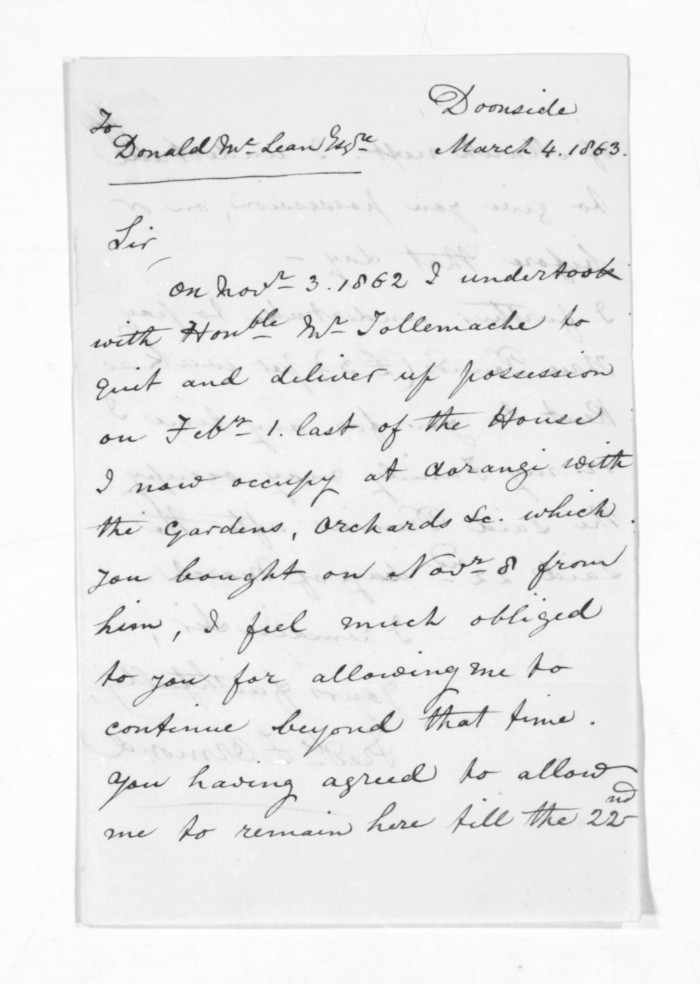 Doonside
To
Donald McLean Esqre March 4. 1863.
Sir
On Novr 3. 1862 I undertook
with Honble Mr Tollemache to
quit and deliver up possession
on Febr 1. last of the House
I now occupy at Aorangi with
the Gardens, Orchards &c. which
you bought on Novr 8 from
him, I feel much obliged
to you for allowing me to
continue beyond that time.
You having agreed to allow
me to remain here till the 22nd